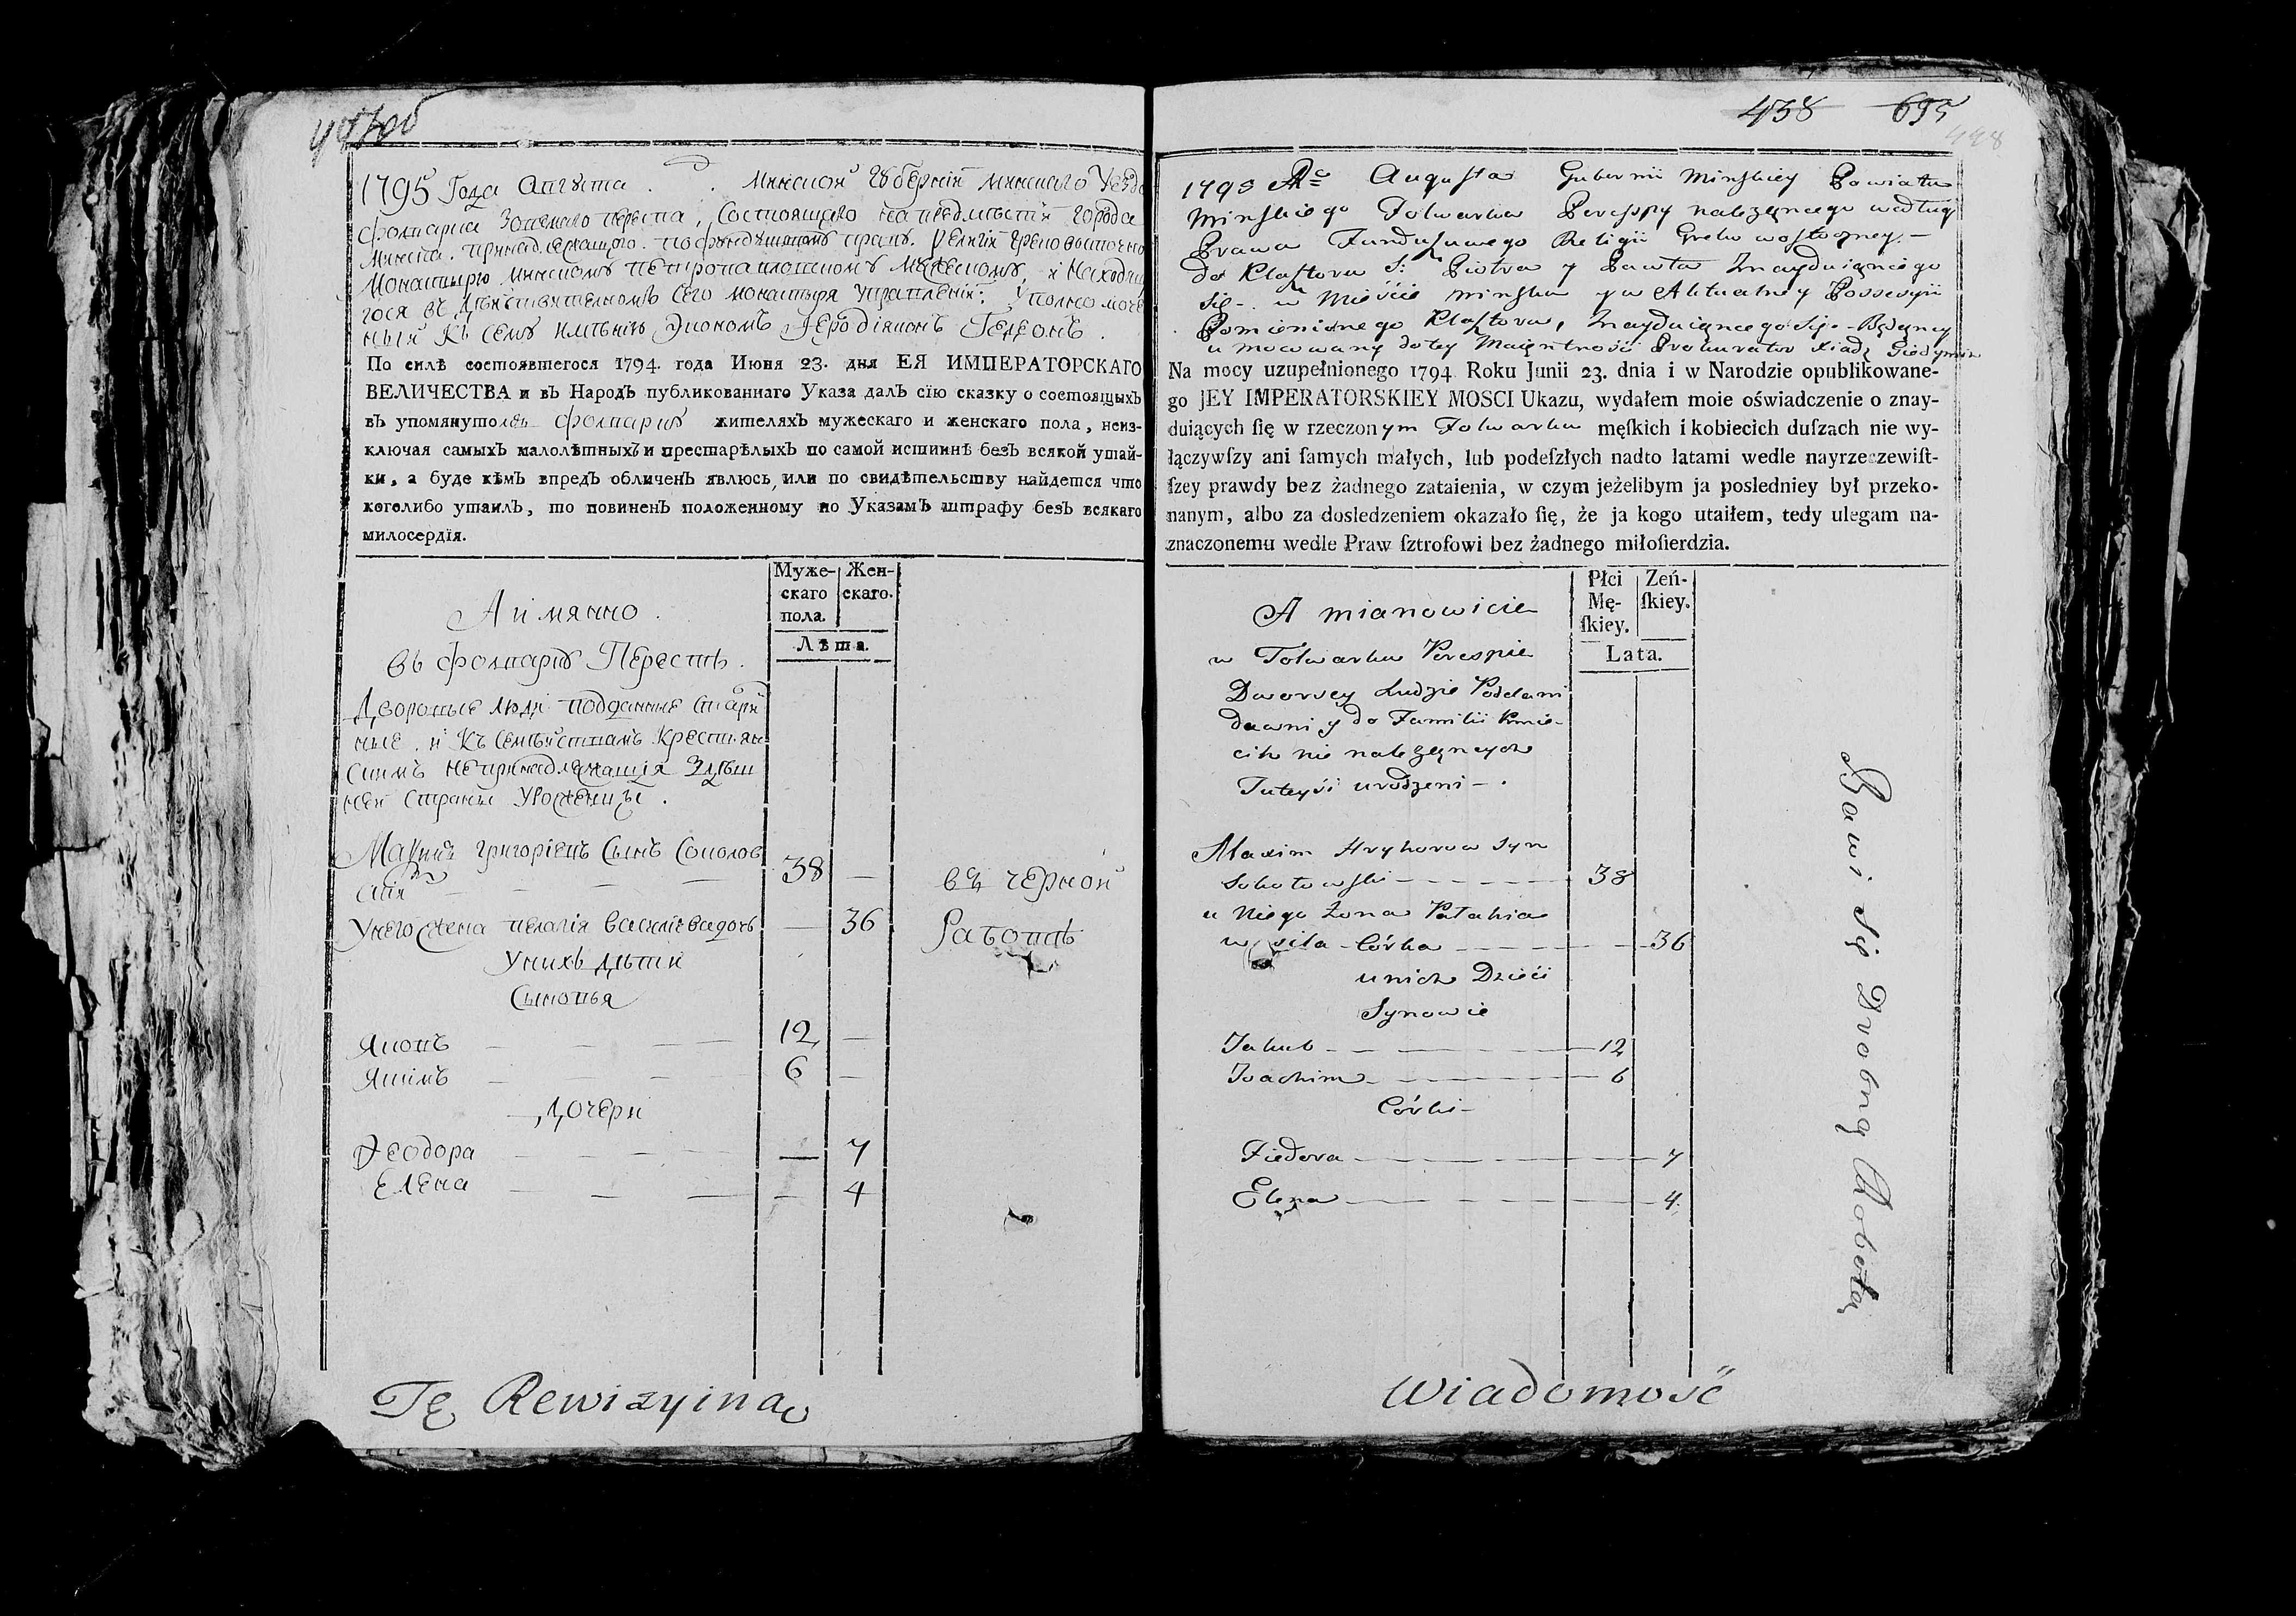 1795 Года Августа . . Минской Губерніи Минскаго Уезда
Фолварка зовемаго переспа, состоящаго на предместіи города
Минска, принадлежащого по фундушовому праву. Религіи греко восточно
Монастырю минскому петропавловскому мужескому, и находящ
гося въ действительномъ сего монастыря управленіи; Уполномоче
ный къ сему имѣнію Экономъ Іеродіяконъ Гедеонъ .
По силѣ состоявшегося 1794. года Июня 23. дня ЕЯ ИМПЕРАТОРСКАГО
ВЕЛИЧЕСТВА и въ Народъ публикованнаго Указа далъ сїю сказку о состоящыхъ
въ упомянутомъ фолварку жителяхъ мужескаго и женскаго пола, неиз-
ключая самыхъ малолѣтныхъ и престарѣлыхъ по самой истиннѣ безъ всякой утай-
ки, а буде кѣмъ впредъ обличенъ явлюсь, или по свидѣтельству найдется что
коголибо утаилъ, то повиненъ положенному по Указамъ штрафу безъ всякаго
милосердїя.
Муже-
скаго
пола.
Жен-
скаго.
Лѣта.
А имянно .
въ фолварку Переспѣ .
Дворовые люди подданные стари
ные, и къ семѣйствамъ крестьян
скимъ непринадлежащія здѣш
ней страны уроженцы .
Мақимъ григоріевъ сынъ Соколов
скія — — — 38 —
въ черной
Унего жена пелагія васильева дочь — 36
работѣ
Унихъ дѣти
Сыновья
Яковъ — — — 12 —
Якимъ — — — 6 —
Дочери
Феодора — — — — 7
Елена — — — — 4
Tę Rewizyiną
438 695
448
1795 Augusta Gubernii Minskiey Powiatu
Minskiego Folwarku Perespy należącego według
Prawa Funduszowego Religii Greko wostoczney. —
do Klasztoru S: Piotra y Pawła Znayduiącego
się w Mieście Mińsku y w Aktualney Possessyii
Pomienionego Klasztoru, Znayduiącego się. Będący
umocowany do tey Maiętności Prokurator Xiądz Giedymin
Na mocy uzupełnionego 1794 Roku Junii 23. dnia i w Narodzie opublikowane-
go JEY IMPERATORSKIEY MOSCI Ukazu, wydałem moie oświadczenie o znay-
duiących ſię w rzeczonym Folwarku męſkich i kobiecich duſzach nie wy-
łączywſzy ani ſamych małych, lub podeſzłych nadto latami wedle nayrzeczewiſt-
ſzey prawdy bez żadnego zataienia, w czym jeżelibym ja posledniey był przeko-
nanym, albo za dosledzeniem okazało ſię, że ja kogo utaiłem, tedy ulegam na-
znaczonemu wedle Praw ſztrofowi bez żadnego miłoſierdzia.
Płci
Mę-
ſkiey.
Zeń-
ſkiey.
Lata.
A mianowicie
w Folwarku Perespie
Dworscy Ludzie Poddani
dawni y do Familii Kmie-
cik nie należących
Tuteyśi urodzeni — .
Maxim Hryhorow Syn
Sokołowski — — — 38
u Niego Żona Pałahia
Córka — — — 36
unich Dzieći
Synowie
Jakub — — — 12
Joachim — — — 6
Córki —
Fiedora — — — 7
Elena — — — 4.
Bawi się Drobną Robotą
Wiadomość